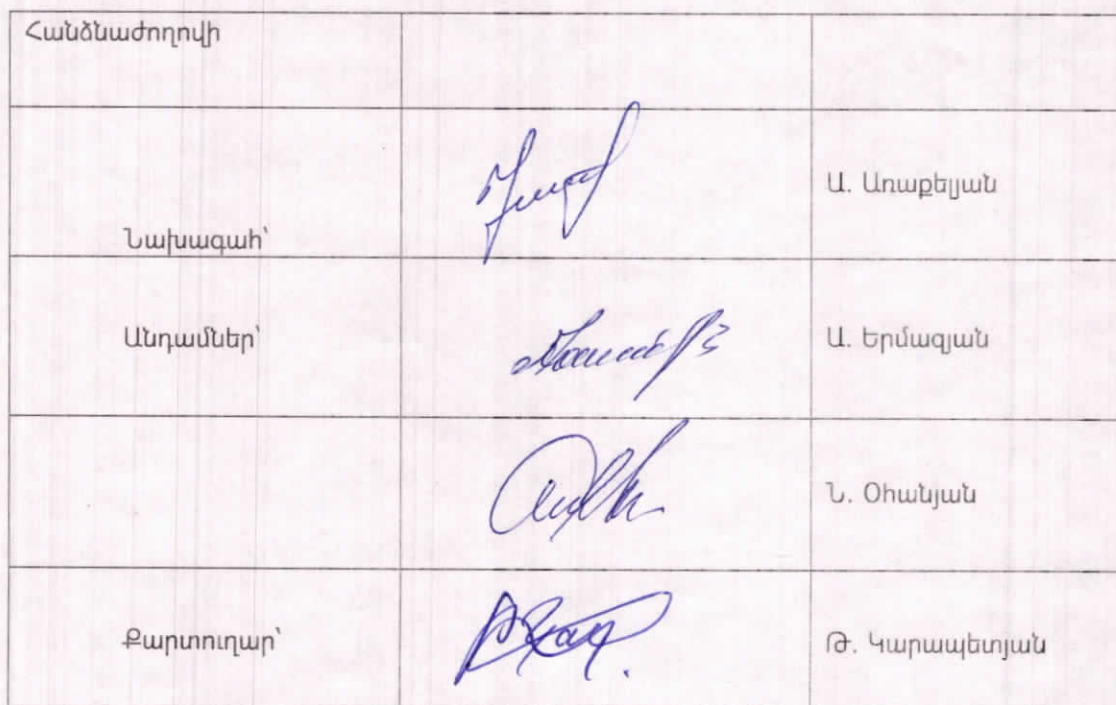 Հանձնաժողովի
Նախագահ՝ Ա. Առաքելյան
Անդամներ՝ Ա. Երմազյան
Ն. Օհանյան
Քարտուղար՝ Թ. Կարապետյան